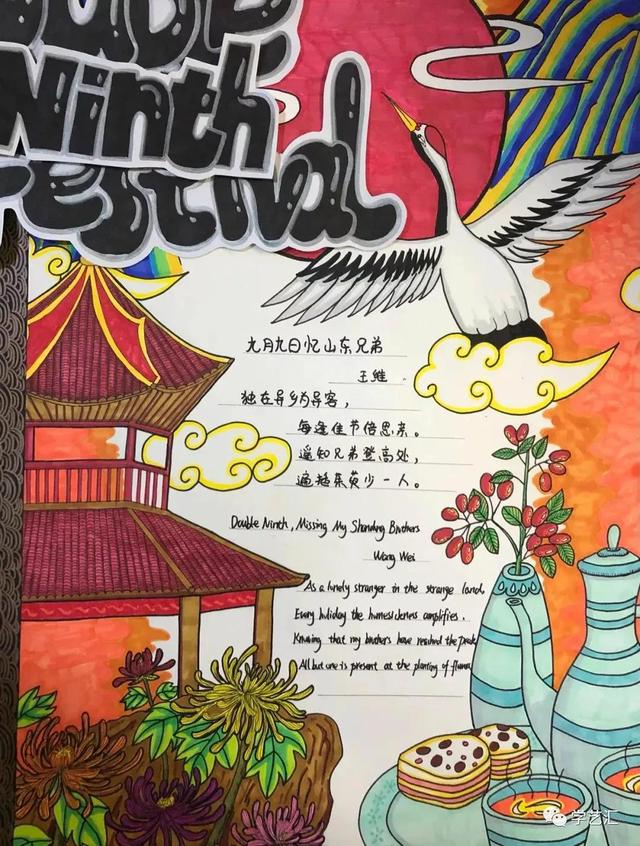 Ninth
Festival
九月九日忆山东兄弟
王维
独在异乡为异客，
每逢佳节倍思亲。
遥知兄弟登高处，
遍插茱萸少一人。
Double Ninth, Missing My Shandong Brothers
Wang Wei
As a lonely stranger in the strange land,
Every holiday the homesickness amplifies.
Knowing that my brothers have reached the peak
All but one is present at the planting of
学艺汇